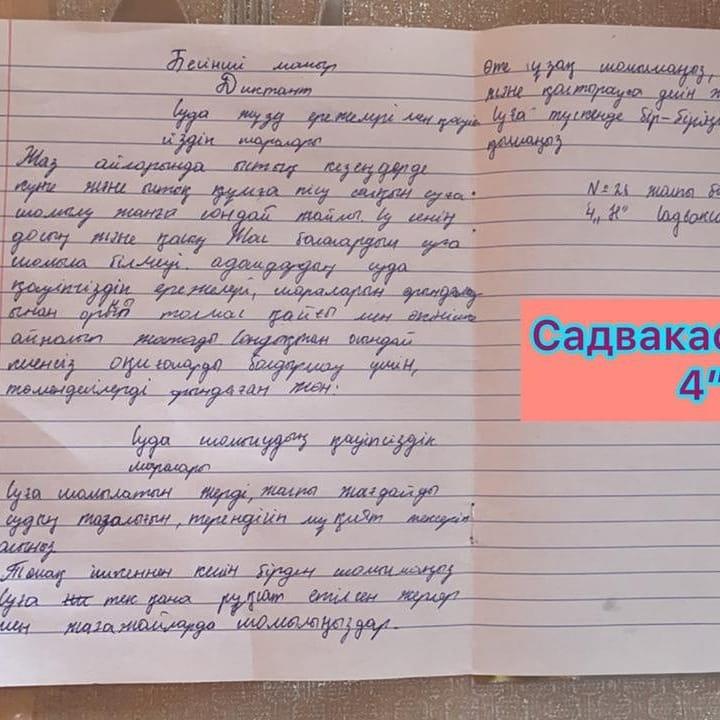 Бесінші мамыр
Диктант
Суда жүзу ережелері мен қауіп
сіздік шаралары
Жаз айларында ыстық кезеңдерде
күнге және ыстық құмға пісу салқын суға
шомылу жанға сондай жайлы Су сенің
досың және қасың Жас балалардың суға
шомыла білмеуі. адамдардың суда
қауіпсіздік ережелері, шараларын орындалу
ынан орны толмас қайғы мен өкінішке
айналып жатады Сондықтан осындай
келеңсіз оқиғаларды болдырмау үшін,
төмендегілерді орындаған жөн:
Суда шомылудың қауіпсіздік
шаралары
Суға шомылатын жерді, жалпы жағдайды
судың тазалығын, тереңдігін мұқият тексеріп
алыңыз
Тамақ ішкеннен кейін бірден шомылмаңыз
Суға тек қана рұқсат етілген жерлер
мен жағажайларда шомылыңыздар.
өте ұзақ шомылмаңыз,
және қалторауға дейін
Суға түскенде бір-біріңіз
қылмаңыз
№ 28 жалпы
4 „Н" Садвакас
Садвакас
4"